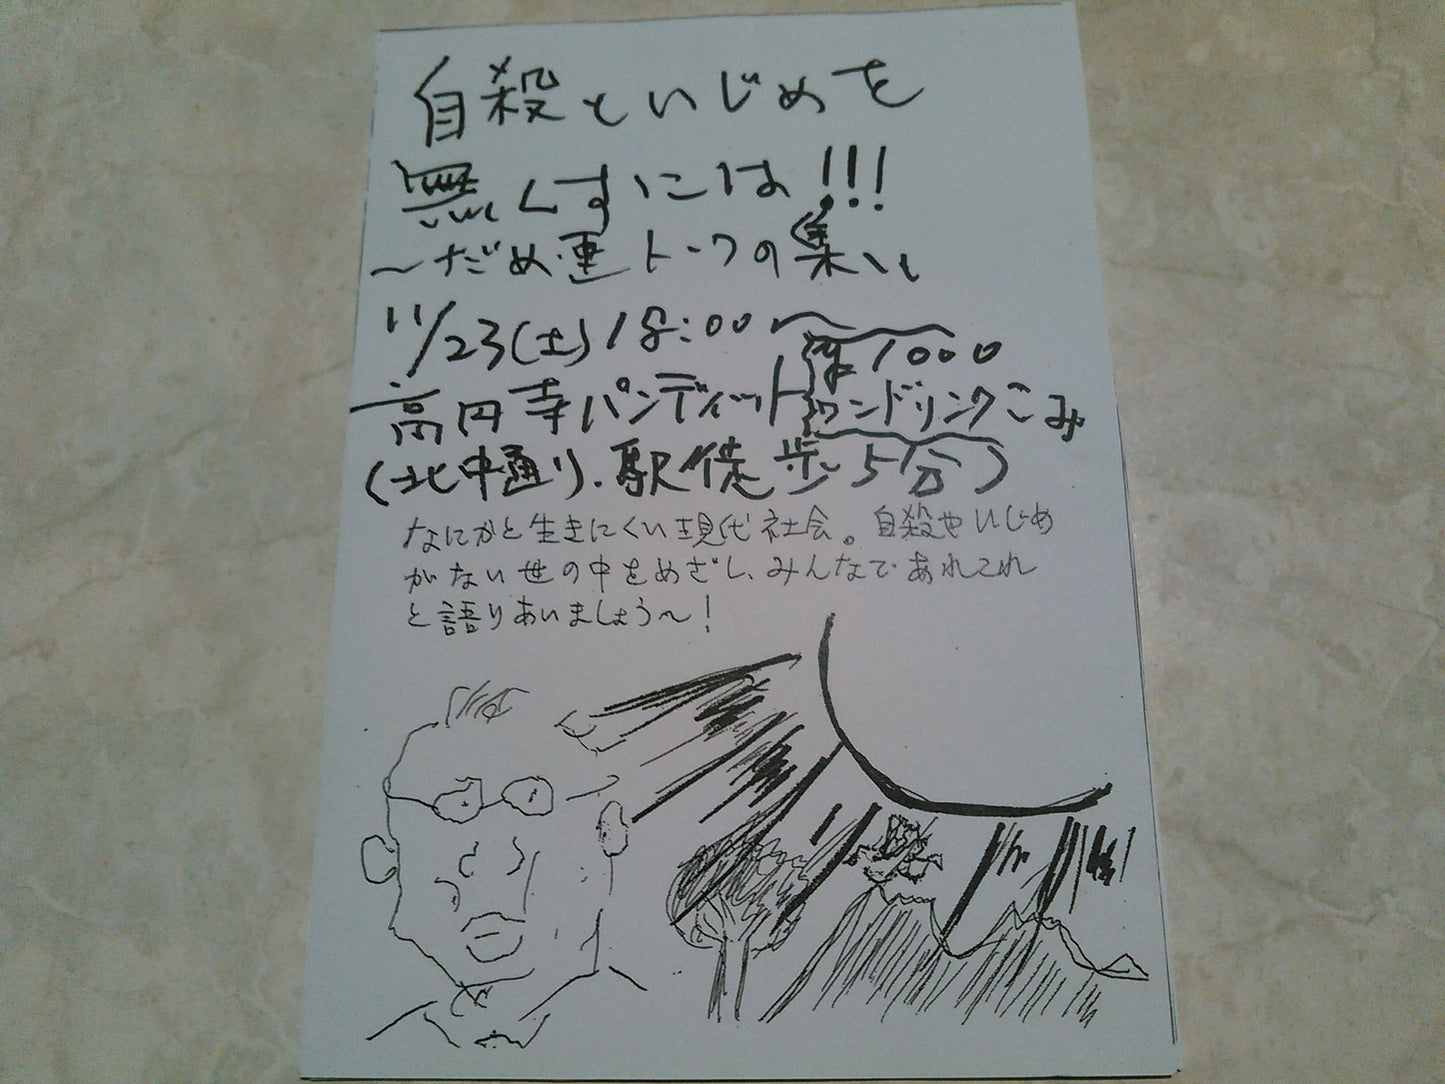 自殺といじめを
無くすには!!!
〜だめ連トークの集い
11/23(土)18:00〜
¥1000
高円寺パンディット
ワンドリンクこみ
(北中通り、駅徒歩5分)
なにかと生きにくい現代社会。自殺やいじめ
がない世の中をめざし、みんなであれこれ
と語りあいましょう〜!